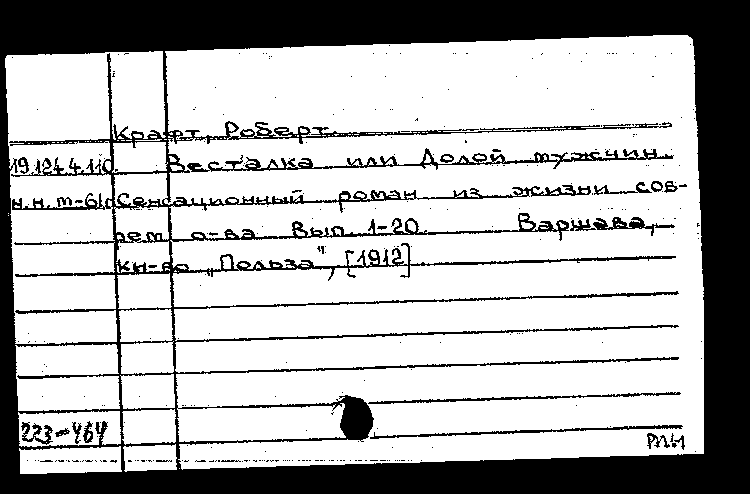 Крафт, Роберт.
19.124.4.110. Весталка или Долой мужчин.
Сенсационный роман из жизни сов-
рем. о-ва. Вып. 1-20. Варшава,
кн-во „Польза", [1912].
223-464